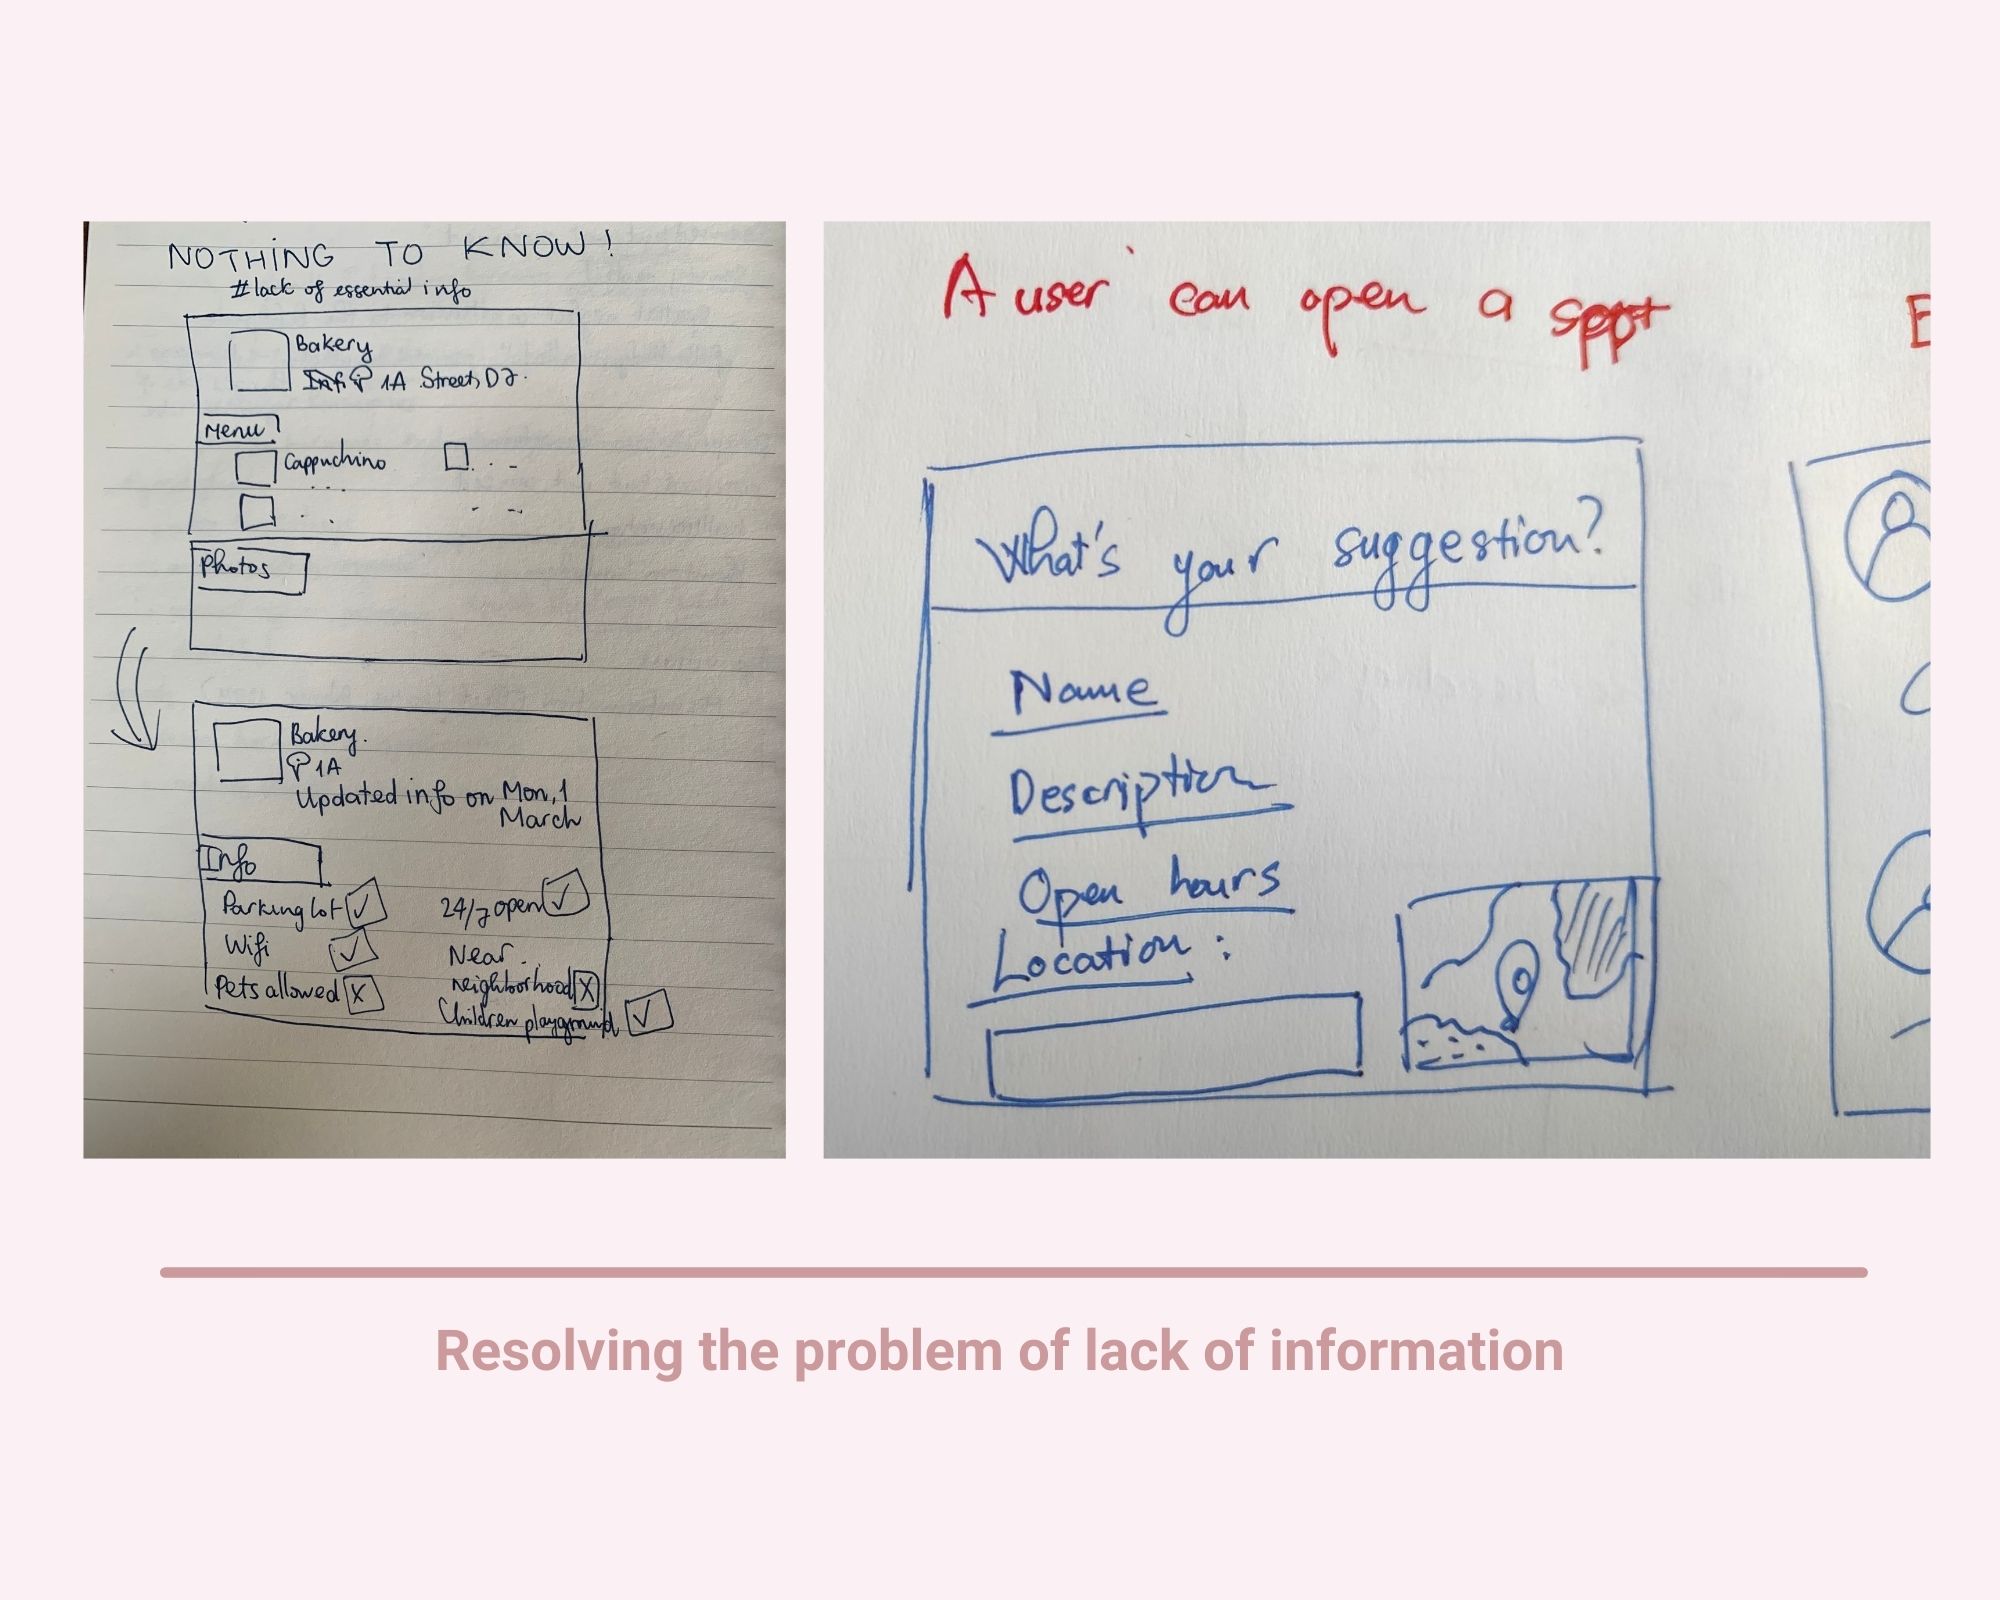 NOTHING TO KNOW!
#lack of essential info
Bakery
1A Street, D2.
Menu
Cappuchino
Photos
Bakery.
1A
Updated info on Mon, 1
March
Info
Parking lot
24/7 open
Wifi
Near
neighborhood
Pets allowed
Children playground
A user can open a spot
E
What's your suggestion?
Name
Description
Open hours
Location:
Resolving the problem of lack of information